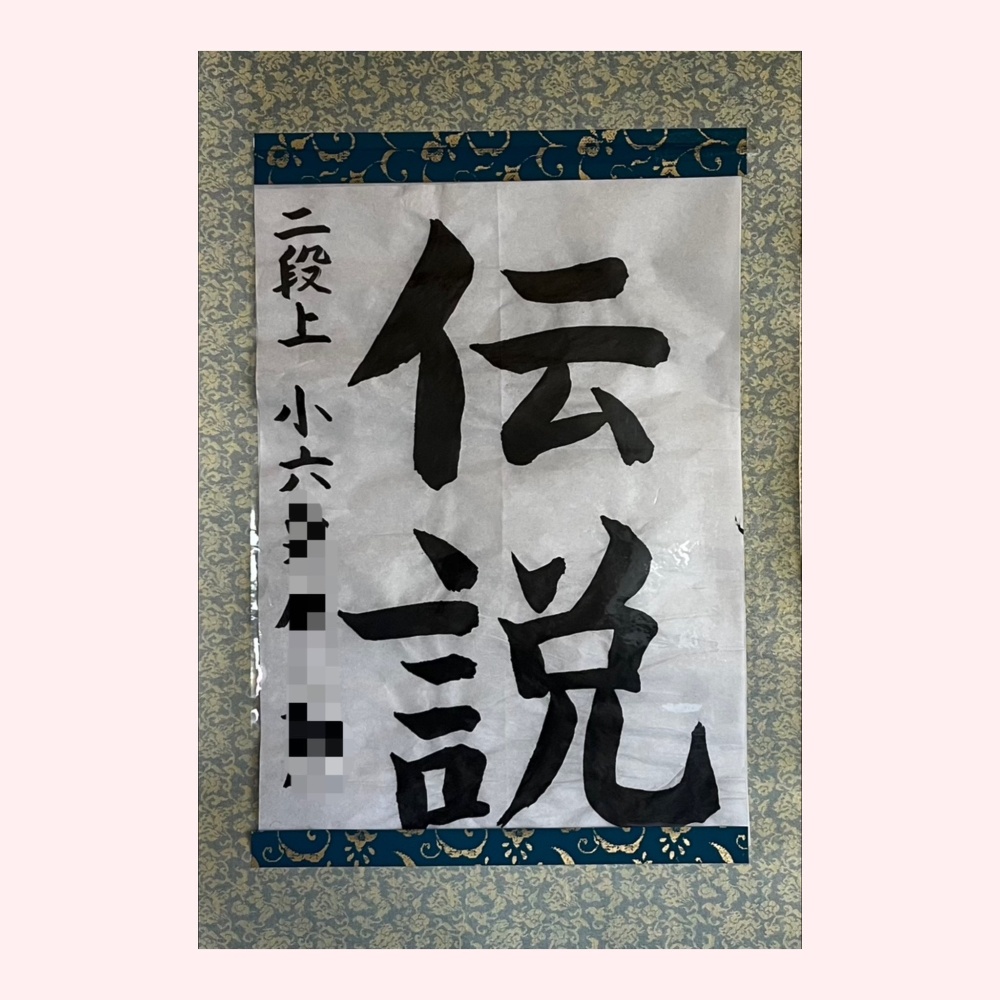 伝説
二段上 小六